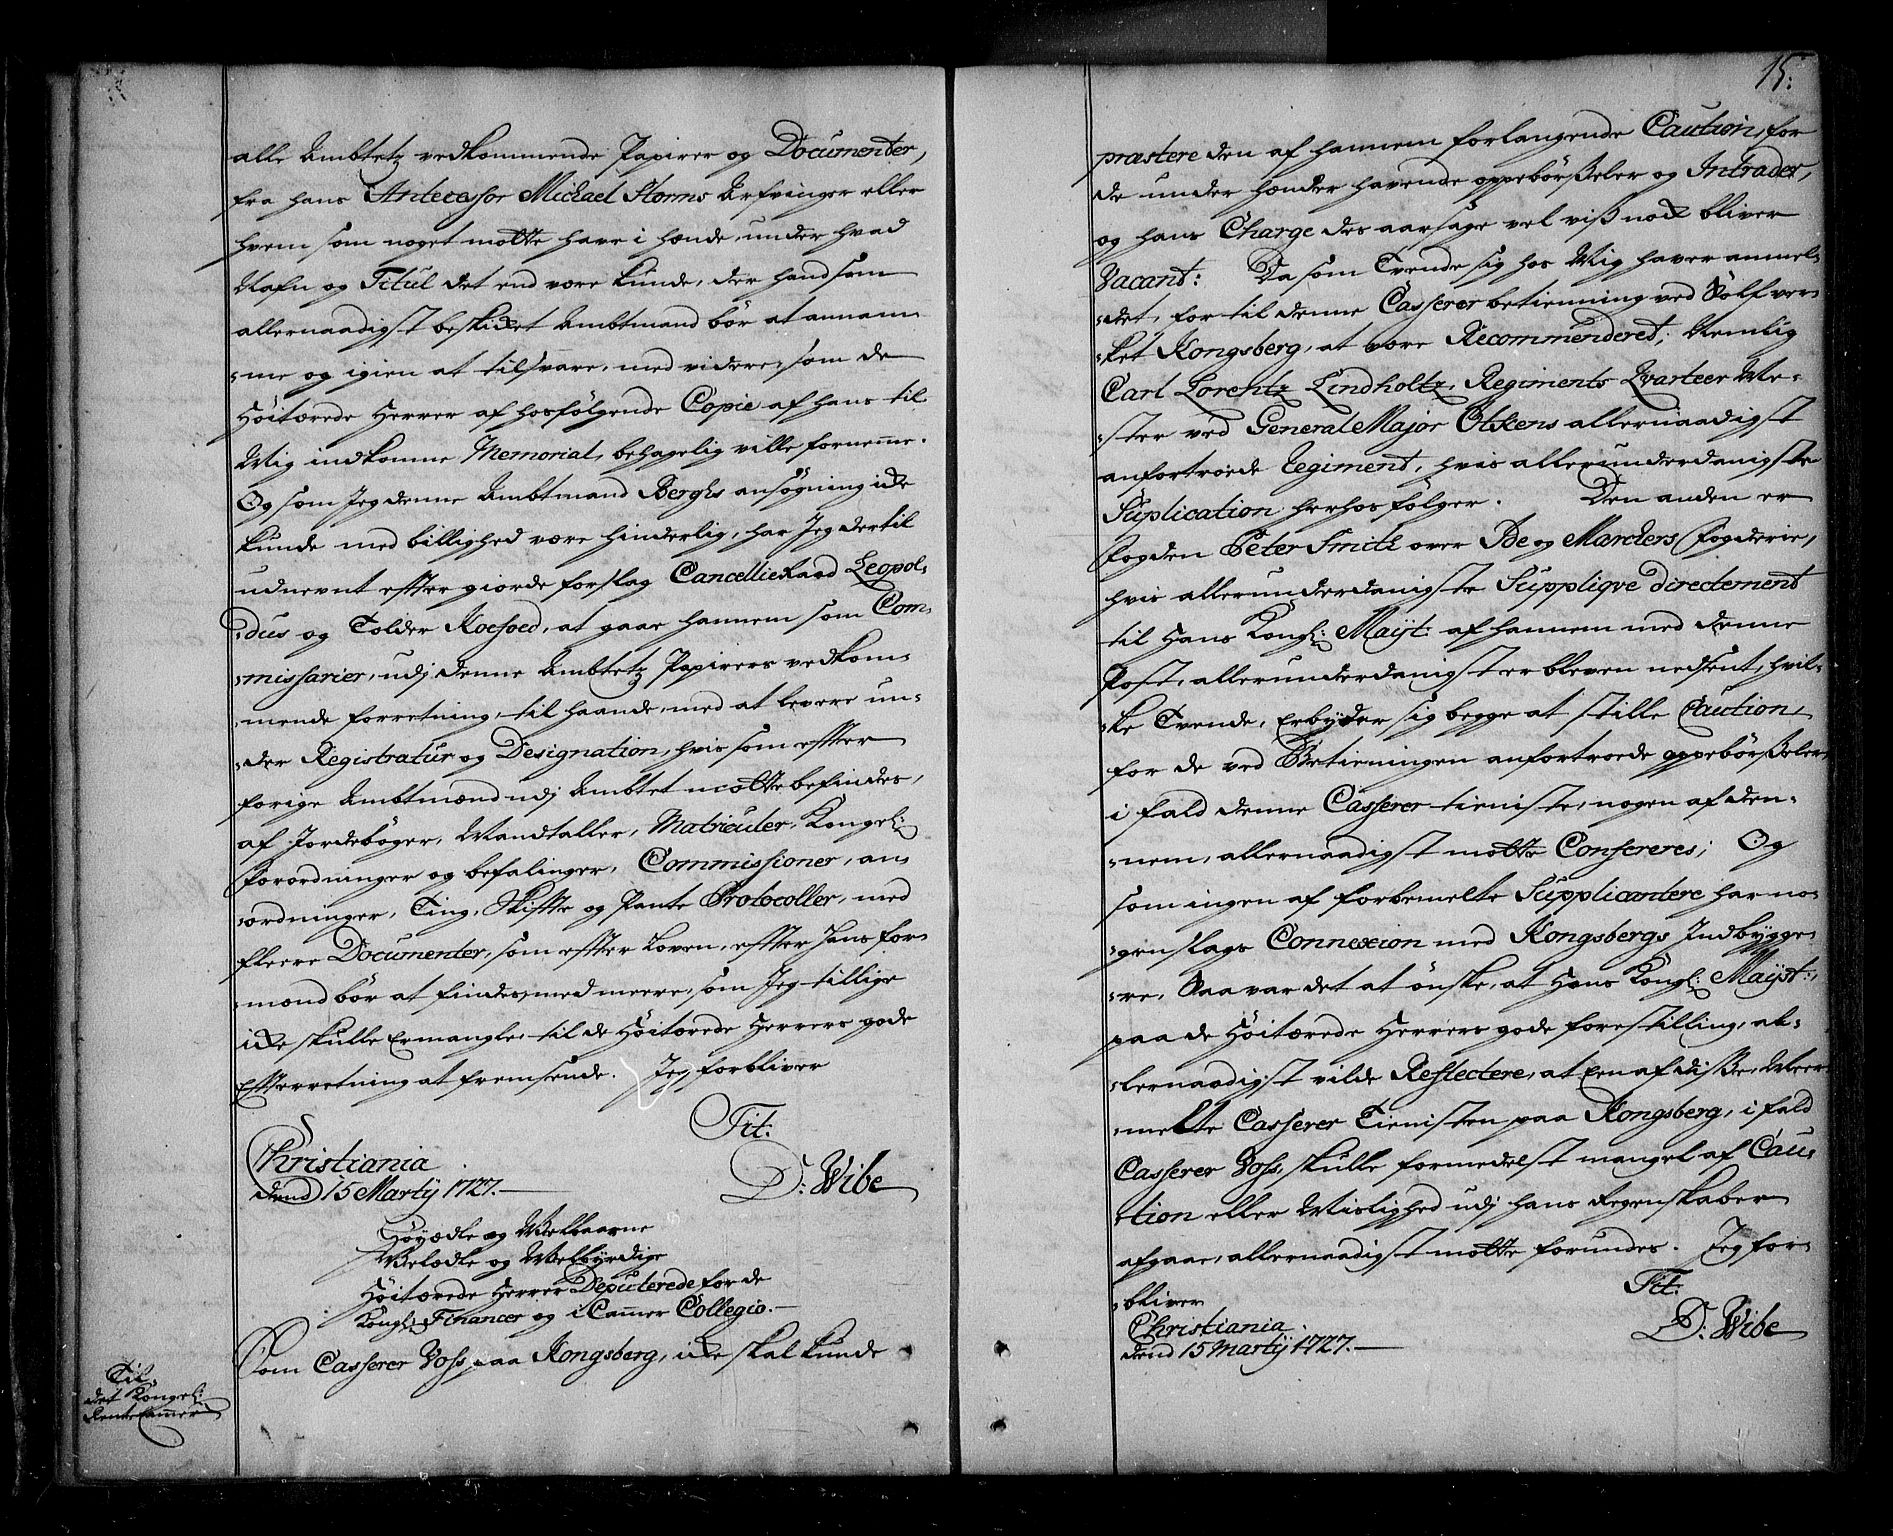 alle Ambtetz vedkommende Papirer og Documenter,
fra hans Antecessor Michael Storms Arfvinger eller
hvem som noget motte have i hænde, under hvad
Nafn og Titul det end være kunde, der hand som
allernaadigst beskicket Ambtmand bör at annam-
-me og igien at tilsvare, med videre, som de
Höitærede Herrer af hosfölgende Copie af hans til
Mig indkomne Memorial, behagelig ville fornemme.
Og som Jeg denne Ambtmand Berghs ansögning icke
kunde med billighed være hinderlig, har Jeg dertil
udnevnt effter giorde forslag CancellieRaad Leopol-
-dus og Tolder Roesoed, at gaae hannem som Com-
-missarier, udj denne Ambtetz Papirers vedkom-
-mende forretning, til haande, med at levere un-
-der Registratur og Designation, hvis som effter
forige Ambtmænd udj Ambtet motte befindes,
af Jordebøger, Mandtaller, Matriculer, Kongel:
forordninger og befalinger, Commissioner, an-
-ordninger, Ting, Skiffte og Pante Protocoller, med
fleere Documenter, som effter Loven, effter hans for-
-mand bör at findes, med meere, som Jeg tillige
icke skulle Ermangle, til de Höitærede Herrers gode
Effterretning at fremsende. Jeg forbliver
Tit:
Christiania
dend 15 Martij 1727.
D: Wibe
Höyædle og Velbaarne
Velædle og Velbyrdige
Höitærede Herrer Deputerede for de
Kongl: Financer og i Cammer Collegio.
Til
det Kongel:
Rente Cammer
Som Casserer Voss paa Kongsberg, icke skal kunde
15:
præstere den af hannem forlangende Caution, for
de under hænder havende oppebörßeler og Intrader,
og hans Charge des aarsage vel viß nock bliver
Vacant: Da som Tvende sig hos Mig haver anmel-
-det, for til denne Casserer betienning ved Sölfver-
-ket Kongsberg, at være Recommenderet; Nemlig
Carl Lorentz Lindholtz, Regiments Qvarteer Me-
-ster ved General Major Otkens allernaadigst
anfortroede Regiment, hvis allerunderdanigste
Suplication herhos fölger. Den anden er
fogden Peter Smith over Ide og Marckers fogderie,
hvis allerunderdanigste Suppliqve directement
til Hans Kongl: Mayt: af hannem med denne
Post, allerunderdanigst er bleven nedsent, hvil-
-ke Tvende, Erbyder sig begge at stille Caution,
for de ved Betieningen anfortroede oppebörßeler,
i fald denne Casserer tieniste, nogen af den-
-nem, allernaadigst motte Confereres; Og
som ingen af forbemelte Supplicantere har no-
-genslags Connexion med Kongsbergs Indbygge-
-re, Saa var det at önske, at Hans Kongl: Mayst:
paa de Höitærede Herrers gode forestilling, al-
-lernaadigst vilde Reflectere, at Een af disse, Meer-
-melte Casserer Tienisten paa Kongsberg, i fald
Casserer Voss, skulle formedelst mangel af Cau-
-tion eller Mislighed udj hans Regenskaber
afgaae, allernaadigst motte forundes. Jeg for-
-bliver
Tit:
Christiania.
dend 15 Martij 1727.
D: Wibe